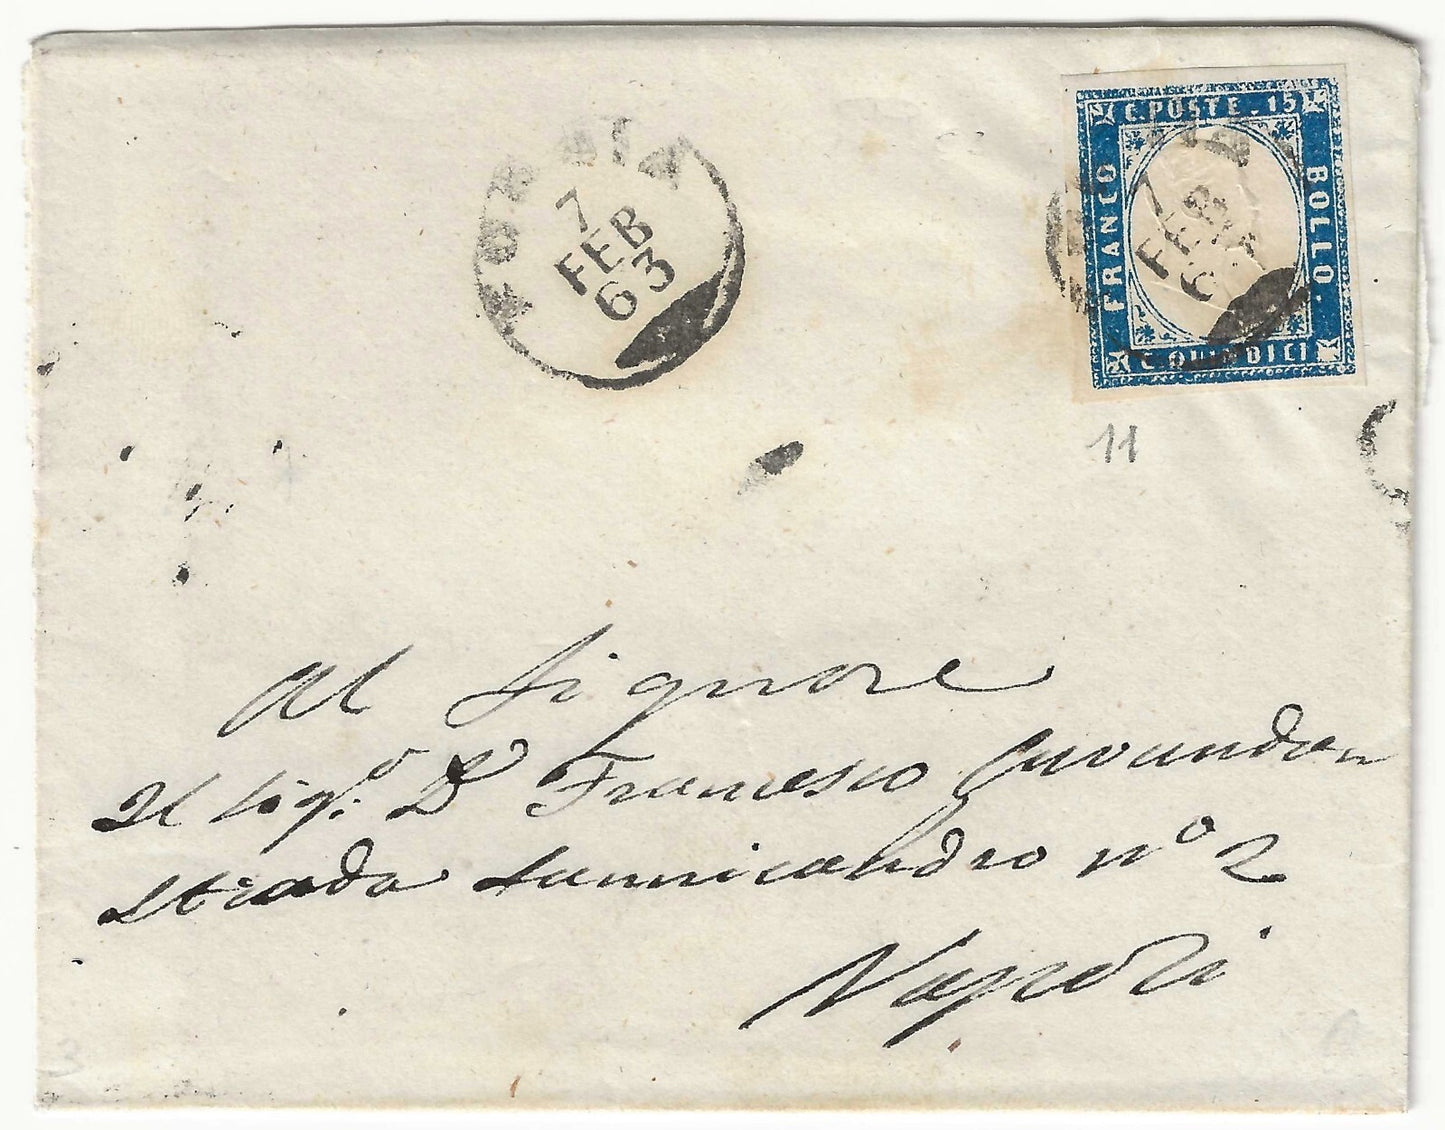 7
FEB
63
C. POSTE. 15
FRANCO
BOLLO.
C. QUINDICI
7
FEB
11
Al Signore
Il Sig.º Dⁿ Francesco
Strada Sannicandro nº 2
Napoli